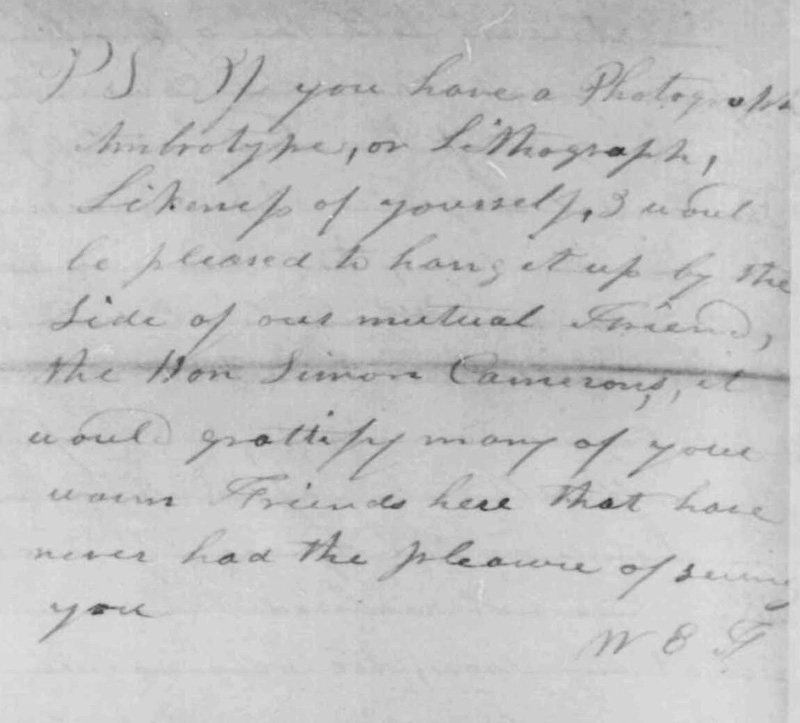 P S If you have a Photograph
Ambrotype, or Lithograph,
Likeness of yourself, I would
be pleased to hang it up by the
Side of our mutual Friend,
the Hon Simon Camerons, it
would grattify many of your
warm Friends here that have
never had the pleasure of seeing
you
W E F